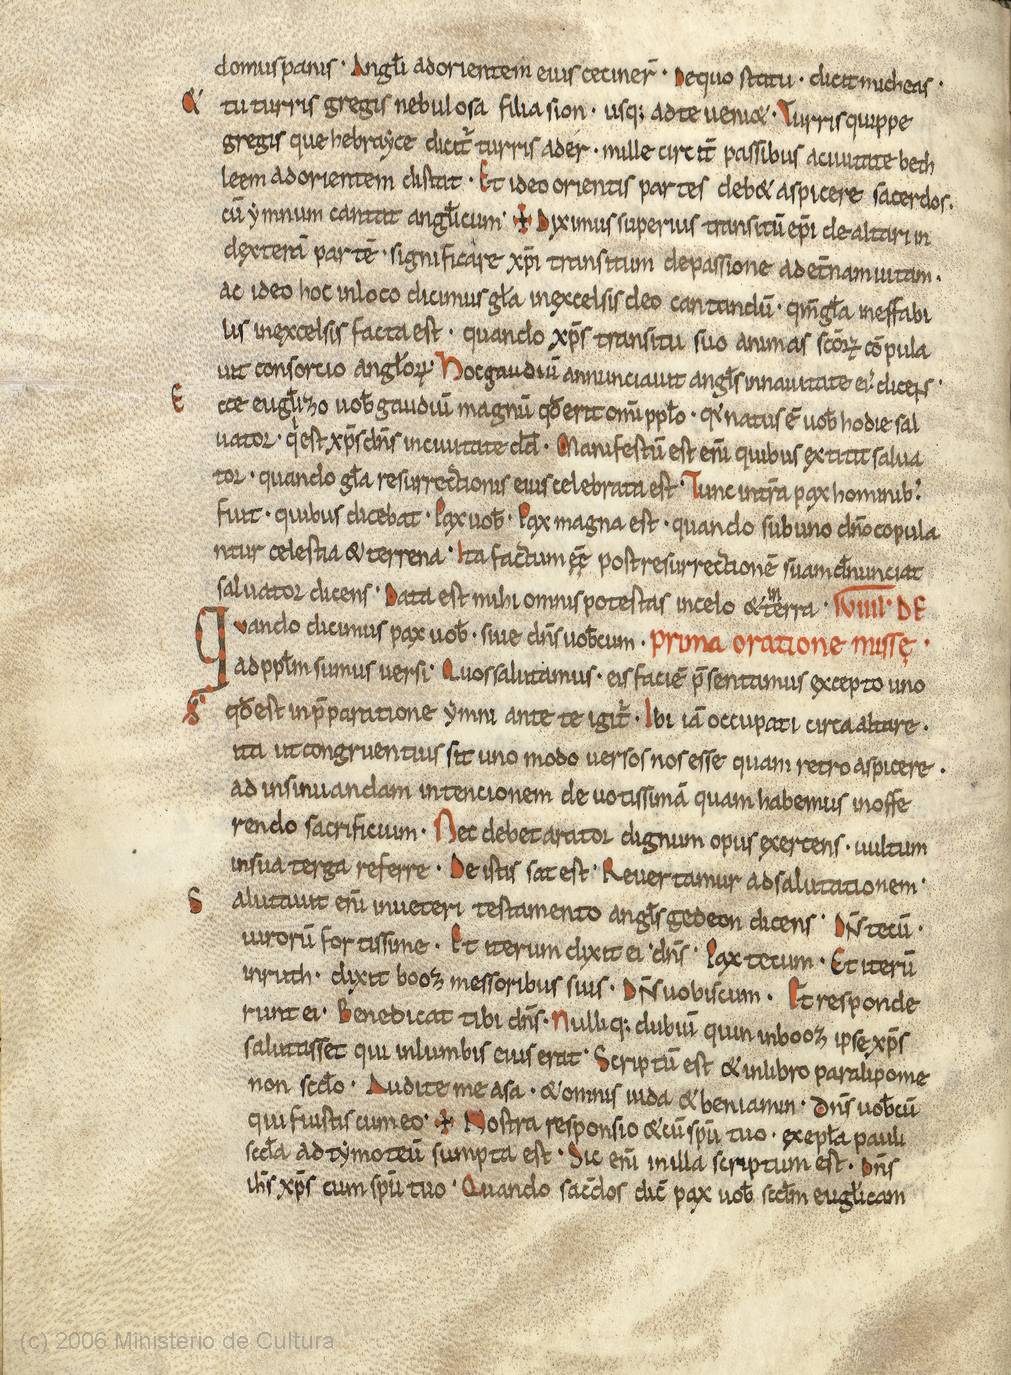 domus panis · Angłi ad orientem eius cecinerͭ · De quo statu · dicit micheas ·
& tu turris gregis nebulosa filia sion · usq; ad te ueni& · Turris quippe
gregis que hebrayce dicit᷑ turris ader · mille circit̄ passibus a ciuitate beth
leem ad orientem distat · Et ideo orientis partes deb& aspicere sacerdos ·
cū ymnum cantat angłicum · ✠ Diximus superius transitū ep̄i de altari in
dexterā partē · significare xp̄i transitum de passione ad et̄nam uitam ·
ac ideo hoc in loco dicimus gła in excelsis deo cantandū · qm̄ gła ineffabi
lis in excelsis facta est · quando xp̄s transitu suo animas scōꝝ cōpula
uit consorcio angłoꝝ · Hoc gaudiū annunciauit angłs in nauitate ei᷒ dicens ·
E cce eugłizo uob̄ gaudiū magnū qđ erit omī ppło · q᷒ natus ē uob̄ hodie sal
uator · q̇ est xp̄s dn̄s in ciuitate dd̄ · Manifestū est enī quibus extitit salua
tor · quando gła resurrectionis eius celebrata est · Tunc in tr̄a pax hominib᷒
fuit · quibus dicebat · Pax uob̄ · Pax magna est · quando sub uno dn̄o copula
ntur celestia & terrena · Ita factum ēē post resurrectionē suam đnunciat
saluator dicens · Data est mihi omnis potestas in celo & in terra · XVIIII · DE
Quando dicimus pax uob̄ · siue dn̄s uob̄cum · prima oratione missę ·
ad ppłm sumus uersi · Quos salutamus · eis faciē p̄sentamus excepto uno
qđ est in p̄paratione ymni ante te igit᷑ · Ibi iā occupati circa altare ·
ita ut congruentius sit uno modo uersos nos esse quam retro aspicere ·
ad insinuandam intencionem deuotissimā quam habemus in offe
rendo sacrificium · Nec debet arator dignum opus exertens · uultum
in sua terga referre · De istis sat est · Reuertamur ad salutationem ·
S alutauit enī in ueteri testamento angłs gedeon dicens · Dn̄s tecū ·
uirorū fortissime · Et iterum dixit ei dn̄s · Pax tecum · Et iterū
in ruth · dixit booz messoribus suis · Dn̄s uobiscum · Et responde
runt ei · Benedicat tibi dn̄s · Nulliq; dubiū quin in booz ipse xp̄s
salutasset qui in lumbis eius erat · Scriptū est & in libro paralipome
non scđo · Audite me asa · & omnis iuda & beniamin · Dn̄s uob̄cū
qui fuistis cum eo · ✠ Nostra responsio & cū spū tuo · ex epła pauli
scđa ad tymoteū sumpta est · Sic enī in illa scriptum est · Dn̄s
ih̄s xp̄s cum spū tuo · Quando sac̄dos dic̄ pax uob̄ scđm eugłicam
(c) 2006 Ministerio de Cultura